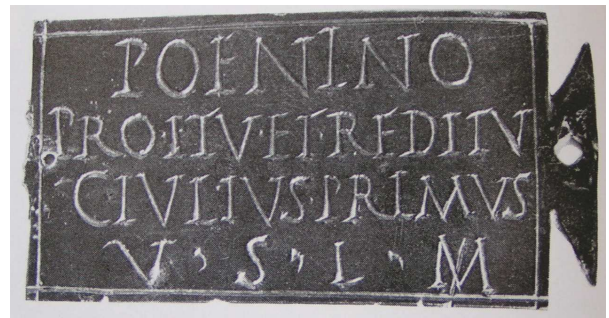 POENINO
PRO ITV·ET·REDITV
C IVLIVS PRIMVS
V · S · L · M